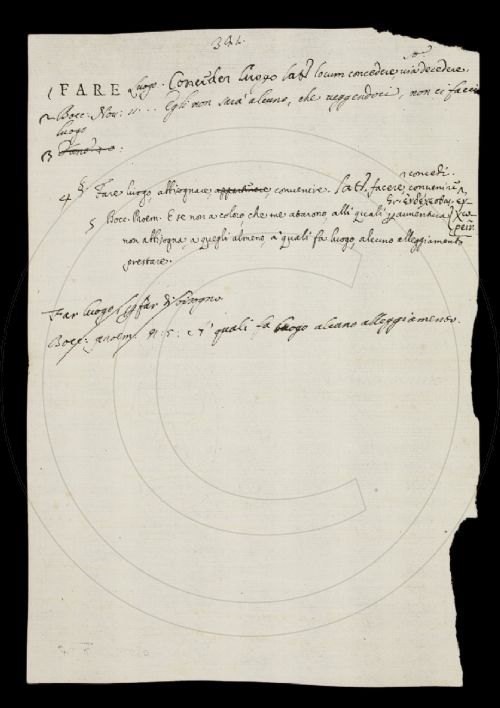 1 FARE Luogo. Conceder luogo latt. locum concedere, via decedere.
2 Bocc. Nov: 11 ... Egli non sarà alcuno, che veggendoci, non ci faccia
luogo
3
concedi.
4 § Fare luogo, abbisognare, appartenere, convenire. latt. facere, convenire,
Gr:
5 Bocc. Proem. E se non a coloro che me atarono, alli quali per avventura
non abbisogna, a quegli almeno, a' quali fa luogo, alcuno alleggiamento
prestare.
Far luogo far di bisogno.
Bocc: proem. n: 5: a' quali fa luogo alcuno alleggiamento.